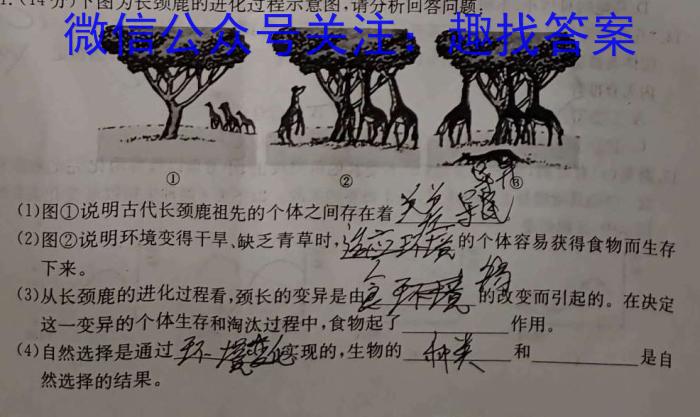 1.(14分)下图为长颈鹿的进化过程示意图,请分析回答问题.
微信公众号关注：趣找答案
① ② ③
(1)图①说明古代长颈鹿祖先的个体之间存在着
(2)图②说明环境变得干旱、缺乏青草时,适应环境的个体容易获得食物而生存
下来。
(3)从长颈鹿的进化过程看,颈长的变异是由环境的改变而引起的。在决定
这一变异的个体生存和淘汰过程中,食物起了________作用。
(4)自然选择是通过环境变化实现的,生物的种类和________是自
然选择的结果。